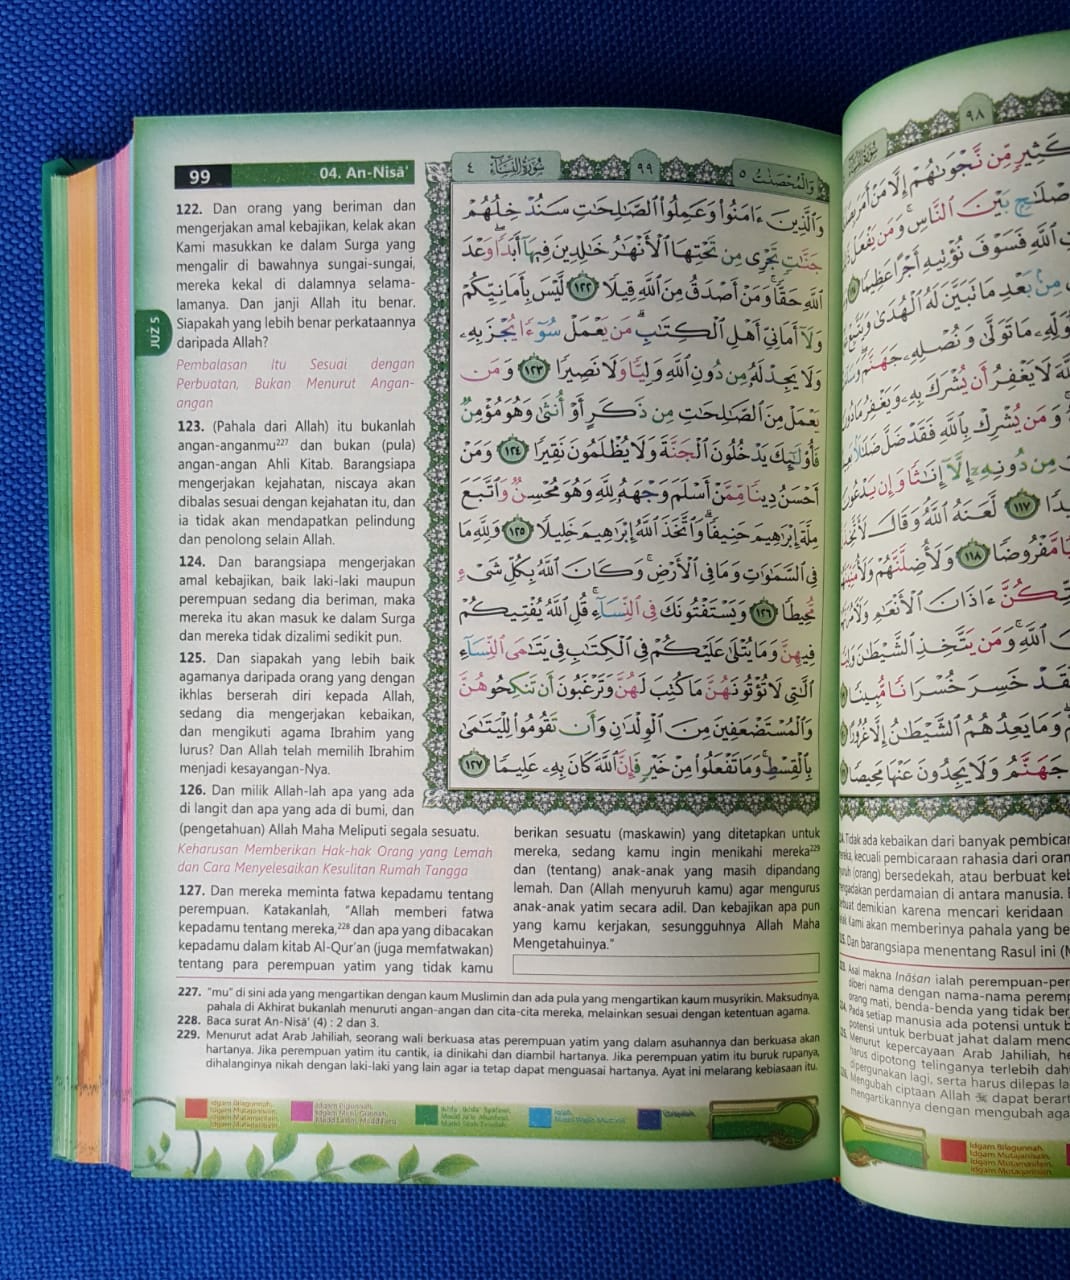 99
04. An-Nisā'
122. Dan orang yang beriman dan
mengerjakan amal kebajikan, kelak akan
Kami masukkan ke dalam Surga yang
mengalir di bawahnya sungai-sungai,
mereka kekal di dalamnya selama-
lamanya. Dan janji Allah itu benar.
Siapakah yang lebih benar perkataannya
daripada Allah?
JUZ 5
Pembalasan Itu Sesuai dengan
Perbuatan, Bukan Menurut Angan-
angan
123. (Pahala dari Allah) itu bukanlah
angan-anganmu²²⁷ dan bukan (pula)
angan-angan Ahli Kitab. Barangsiapa
mengerjakan kejahatan, niscaya akan
dibalas sesuai dengan kejahatan itu, dan
ia tidak akan mendapatkan pelindung
dan penolong selain Allah.
124. Dan barangsiapa mengerjakan
amal kebajikan, baik laki-laki maupun
perempuan sedang dia beriman, maka
mereka itu akan masuk ke dalam Surga
dan mereka tidak dizalimi sedikit pun.
125. Dan siapakah yang lebih baik
agamanya daripada orang yang dengan
ikhlas berserah diri kepada Allah,
sedang dia mengerjakan kebaikan,
dan mengikuti agama Ibrahim yang
lurus? Dan Allah telah memilih Ibrahim
menjadi kesayangan-Nya.
126. Dan milik Allah-lah apa yang ada
di langit dan apa yang ada di bumi, dan
(pengetahuan) Allah Maha Meliputi segala sesuatu.
Keharusan Memberikan Hak-hak Orang yang Lemah
dan Cara Menyelesaikan Kesulitan Rumah Tangga
127. Dan mereka meminta fatwa kepadamu tentang
perempuan. Katakanlah, "Allah memberi fatwa
kepadamu tentang mereka,²²⁸ dan apa yang dibacakan
kepadamu dalam kitab Al-Qur'an (juga memfatwakan)
tentang para perempuan yatim yang tidak kamu
berikan sesuatu (maskawin) yang ditetapkan untuk
mereka, sedang kamu ingin menikahi mereka²²⁹
dan (tentang) anak-anak yang masih dipandang
lemah. Dan (Allah menyuruh kamu) agar mengurus
anak-anak yatim secara adil. Dan kebajikan apa pun
yang kamu kerjakan, sesungguhnya Allah Maha
Mengetahuinya."
سُورَةُ النِّسَاءِ ٤
٩٩
وَالْمُحْصَنٰتُ ٥
وَالَّذِينَ ءَامَنُوا۟ وَعَمِلُوا۟ الصَّٰلِحَٰتِ سَنُدْخِلُهُمْ
جَنَّٰتٍ تَجْرِى مِن تَحْتِهَا الْأَنْهَٰرُ خَٰلِدِينَ فِيهَآ أَبَدًا ۖ وَعْدَ
اللَّهِ حَقًّا ۚ وَمَنْ أَصْدَقُ مِنَ اللَّهِ قِيلًا ١٢٢ لَّيْسَ بِأَمَانِيِّكُمْ
وَلَآ أَمَانِىِّ أَهْلِ الْكِتَٰبِ ۗ مَن يَعْمَلْ سُوٓءًا يُجْزَ بِهِۦ
وَلَا يَجِدْ لَهُۥ مِن دُونِ اللَّهِ وَلِيًّا وَلَا نَصِيرًا ١٢٣ وَمَن
يَعْمَلْ مِنَ الصَّٰلِحَٰتِ مِن ذَكَرٍ أَوْ أُنثَىٰ وَهُوَ مُؤْمِنٌ
فَأُو۟لَٰٓئِكَ يَدْخُلُونَ الْجَنَّةَ وَلَا يُظْلَمُونَ نَقِيرًا ١٢٤ وَمَنْ
أَحْسَنُ دِينًا مِّمَّنْ أَسْلَمَ وَجْهَهُۥ لِلَّهِ وَهُوَ مُحْسِنٌ وَاتَّبَعَ
مِلَّةَ إِبْرَٰهِيمَ حَنِيفًا ۗ وَاتَّخَذَ اللَّهُ إِبْرَٰهِيمَ خَلِيلًا ١٢٥ وَلِلَّهِ مَا
فِى السَّمَٰوَٰتِ وَمَا فِى الْأَرْضِ ۚ وَكَانَ اللَّهُ بِكُلِّ شَىْءٍ
مُّحِيطًا ١٢٦ وَيَسْتَفْتُونَكَ فِى النِّسَآءِ ۖ قُلِ اللَّهُ يُفْتِيكُمْ
فِيهِنَّ وَمَا يُتْلَىٰ عَلَيْكُمْ فِى الْكِتَٰبِ فِى يَتَٰمَى النِّسَآءِ
الَّٰتِى لَا تُؤْتُونَهُنَّ مَا كُتِبَ لَهُنَّ وَتَرْغَبُونَ أَن تَنكِحُوهُنَّ
وَالْمُسْتَضْعَفِينَ مِنَ الْوِلْدَٰنِ وَأَن تَقُومُوا۟ لِلْيَتَٰمَىٰ
بِالْقِسْطِ ۚ وَمَا تَفْعَلُوا۟ مِنْ خَيْرٍ فَإِنَّ اللَّهَ كَانَ بِهِۦ عَلِيمًا ١٢٧
227. "mu" di sini ada yang mengartikan dengan kaum Muslimin dan ada pula yang mengartikan kaum musyrikin. Maksudnya,
pahala di Akhirat bukanlah menuruti angan-angan dan cita-cita mereka, melainkan sesuai dengan ketentuan agama.
228. Baca surat An-Nisā' (4) : 2 dan 3.
229. Menurut adat Arab Jahiliah, seorang wali berkuasa atas perempuan yatim yang dalam asuhannya dan berkuasa akan
hartanya. Jika perempuan yatim itu cantik, ia dinikahi dan diambil hartanya. Jika perempuan yatim itu buruk rupanya,
dihalanginya nikah dengan laki-laki yang lain agar ia tetap dapat menguasai hartanya. Ayat ini melarang kebiasaan itu.
٩٨
كَثِيرٍ مِّن نَّجْوَىٰهُمْ إِلَّا مَنْ أَمَرَ
بَيْنَ النَّاسِ ۚ وَمَن يَفْعَلْ
فَسَوْفَ نُؤْتِيهِ أَجْرًا عَظِيمًا
مِنۢ بَعْدِ مَا تَبَيَّنَ لَهُ الْهُدَىٰ
مَا تَوَلَّىٰ وَنُصْلِهِۦ جَهَنَّمَ
لَا يَغْفِرُ أَن يُشْرَكَ بِهِۦ وَيَغْفِرُ مَا دُونَ
وَمَن يُشْرِكْ بِاللَّهِ فَقَدْ ضَلَّ
مِن دُونِهِۦٓ إِلَّآ إِنَٰثًا وَإِن يَدْعُونَ
١١٧ لَّعَنَهُ اللَّهُ وَقَالَ
مَّفْرُوضًا ١١٨ وَلَأُضِلَّنَّهُمْ
ءَاذَانَ الْأَنْعَٰمِ
اللَّهِ ۚ وَمَن يَتَّخِذِ الشَّيْطَٰنَ
خَسِرَ خُسْرَانًا مُّبِينًا
وَمَا يَعِدُهُمُ الشَّيْطَٰنُ إِلَّا غُرُورًا
جَهَنَّمُ وَلَا يَجِدُونَ عَنْهَا مَحِيصًا
Tidak ada kebaikan dari banyak
kecuali pembicaraan rahasia dari
(orang) bersedekah, atau berbuat
perdamaian di antara manusia.
demikian karena mencari keridaan
Kami akan memberinya pahala yang
Dan barangsiapa menentang Rasul ini
Asal makna Ināsan ialah
diberi nama dengan nama-nama
orang mati, benda-benda yang tidak
Pada setiap manusia ada potensi untuk
potensi untuk berbuat jahat dalam
Menurut kepercayaan Arab Jahiliah,
harus dipotong telinganya terlebih
dipergunakan lagi, serta harus dilepas
Mengubah ciptaan Allah ﷻ dapat
mengartikannya dengan mengubah
Idgam Bilagunnah,
Idgam Mutajanisain,
Idgam Mutamasilain,
Idgam Mutaqaribain.